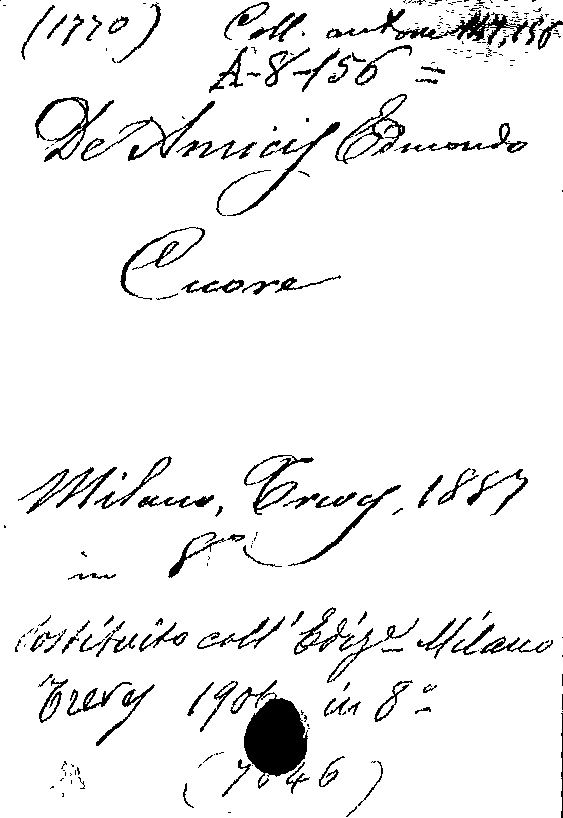 (1770) Coll. antom
A-8-156 =
De Amicis Edmondo
Cuore
Milano, Treves, 1887
in 8°
Sostituito coll' Edizᵉ Milano
Treves 1906 in 8°
(7646)